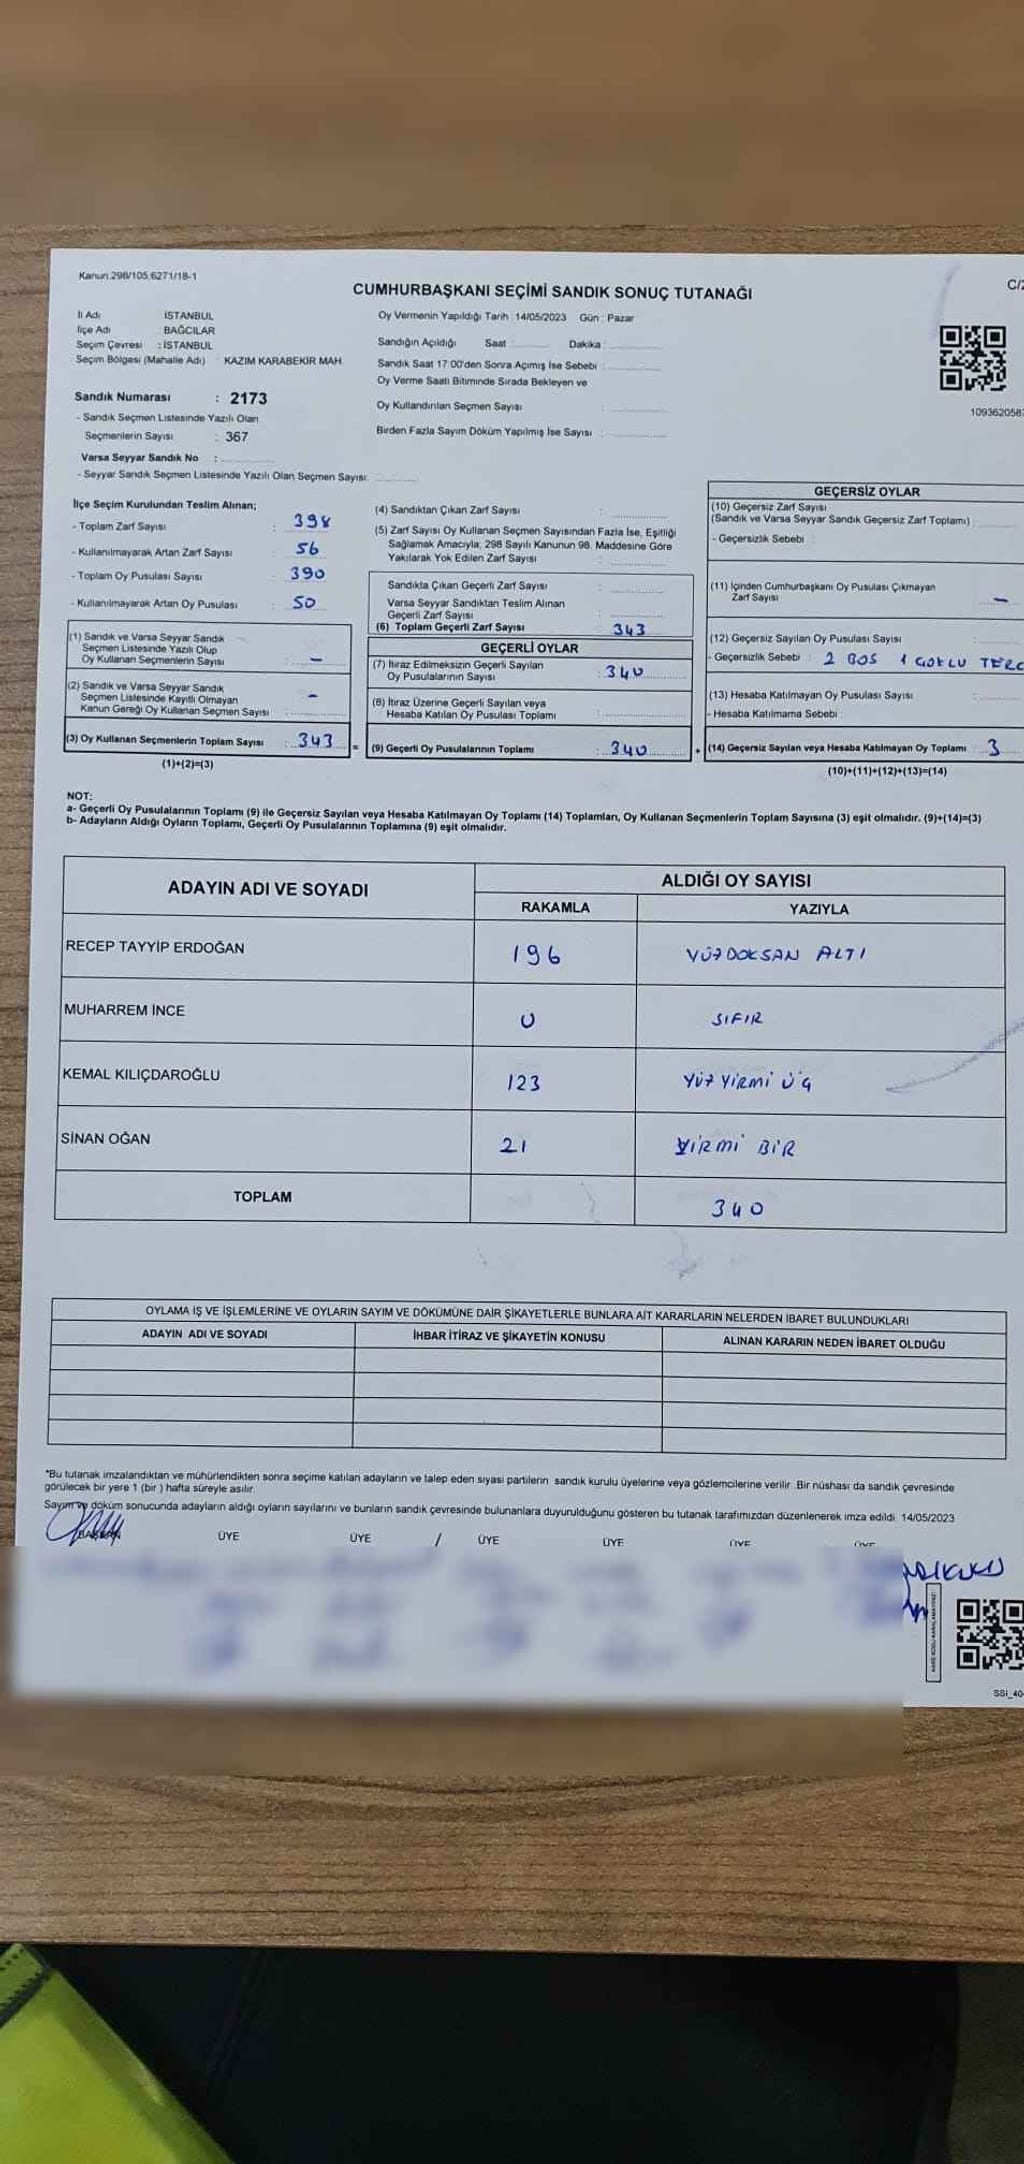 Kanun 298/105,6271/18-1
C/2
CUMHURBAŞKANI SEÇİMİ SANDIK SONUÇ TUTANAĞI
İl Adı : İSTANBUL
İlçe Adı : BAĞCILAR
Seçim Çevresi : İSTANBUL
Seçim Bölgesi (Mahalle Adı) : KAZIM KARABEKİR MAH.
Sandık Numarası : 2173
- Sandık Seçmen Listesinde Yazılı Olan
Seçmenlerin Sayısı : 367
Varsa Seyyar Sandık No :
- Seyyar Sandık Seçmen Listesinde Yazılı Olan Seçmen Sayısı:
Oy Vermenin Yapıldığı Tarih : 14/05/2023 Gün : Pazar
Sandığın Açıldığı Saat : Dakika :
Sandık Saat 17:00'den Sonra Açımış İse Sebebi :
Oy Verme Saati Bitiminde Sırada Bekleyen ve
Oy Kullandırılan Seçmen Sayısı :
Birden Fazla Sayım Döküm Yapılmış İse Sayısı :
İlçe Seçim Kurulundan Teslim Alınan;
- Toplam Zarf Sayısı : 398
- Kullanılmayarak Artan Zarf Sayısı : 56
- Toplam Oy Pusulası Sayısı : 390
- Kullanılmayarak Artan Oy Pusulası : 50
(1) Sandık ve Varsa Seyyar Sandık
Seçmen Listesinde Yazılı Olup
Oy Kullanan Seçmenlerin Sayısı : -
(2) Sandık ve Varsa Seyyar Sandık
Seçmen Listesinde Kayıtlı Olmayan
Kanun Gereği Oy Kullanan Seçmen Sayısı : -
(3) Oy Kullanan Seçmenlerin Toplam Sayısı : 343
(1)+(2)=(3)
(4) Sandıktan Çıkan Zarf Sayısı :
(5) Zarf Sayısı Oy Kullanan Seçmen Sayısından Fazla İse, Eşitliği
Sağlamak Amacıyla; 298 Sayılı Kanunun 98. Maddesine Göre
Yakılarak Yok Edilen Zarf Sayısı :
Sandıkta Çıkan Geçerli Zarf Sayısı :
Varsa Seyyar Sandıktan Teslim Alınan
Geçerli Zarf Sayısı :
(6) Toplam Geçerli Zarf Sayısı : 343
GEÇERLİ OYLAR
(7) İtiraz Edilmeksizin Geçerli Sayılan
Oy Pusulalarının Sayısı : 340
(8) İtiraz Üzerine Geçerli Sayılan veya
Hesaba Katılan Oy Pusulası Toplamı :
= (9) Geçerli Oy Pusulalarının Toplamı : 340
GEÇERSİZ OYLAR
(10) Geçersiz Zarf Sayısı
(Sandık ve Varsa Seyyar Sandık Geçersiz Zarf Toplamı) :
- Geçersizlik Sebebi :
(11) İçinden Cumhurbaşkanı Oy Pusulası Çıkmayan
Zarf Sayısı : -
(12) Geçersiz Sayılan Oy Pusulası Sayısı :
- Geçersizlik Sebebi : 2 BOŞ 1 ÇOKLU TERC
(13) Hesaba Katılmayan Oy Pusulası Sayısı :
- Hesaba Katılmama Sebebi :
+ (14) Geçersiz Sayılan veya Hesaba Katılmayan Oy Toplamı : 3
(10)+(11)+(12)+(13)=(14)
NOT:
a- Geçerli Oy Pusulalarının Toplamı (9) ile Geçersiz Sayılan veya Hesaba Katılmayan Oy Toplamı (14) Toplamları, Oy Kullanan Seçmenlerin Toplam Sayısına (3) eşit olmalıdır. (9)+(14)=(3)
b- Adayların Aldığı Oyların Toplamı, Geçerli Oy Pusulalarının Toplamına (9) eşit olmalıdır.
ADAYIN ADI VE SOYADI ALDIĞI OY SAYISI
RAKAMLA YAZIYLA
RECEP TAYYİP ERDOĞAN 196 YÜZDOKSAN ALTI
MUHARREM İNCE 0 SIFIR
KEMAL KILIÇDAROĞLU 123 YÜZ YİRMİ ÜÇ
SİNAN OĞAN 21 YİRMİ BİR
TOPLAM 340
OYLAMA İŞ VE İŞLEMLERİNE VE OYLARIN SAYIM VE DÖKÜMÜNE DAİR ŞİKAYETLERLE BUNLARA AİT KARARLARIN NELERDEN İBARET BULUNDUKLARI
ADAYIN ADI VE SOYADI İHBAR İTİRAZ VE ŞİKAYETİN KONUSU ALINAN KARARIN NEDEN İBARET OLDUĞU
*Bu tutanak imzalandıktan ve mühürlendikten sonra seçime katılan adayların ve talep eden siyasi partilerin sandık kurulu üyelerine veya gözlemcilerine verilir. Bir nüshası da sandık çevresinde
görülecek bir yere 1 (bir) hafta süreyle asılır.
Sayım ve döküm sonucunda adayların aldığı oyların sayılarını ve bunların sandık çevresinde bulunanlara duyurulduğunu gösteren bu tutanak tarafımızdan düzenlenerek imza edildi. 14/05/2023
BAŞKAN ÜYE ÜYE ÜYE ÜYE ÜYE ÜYE